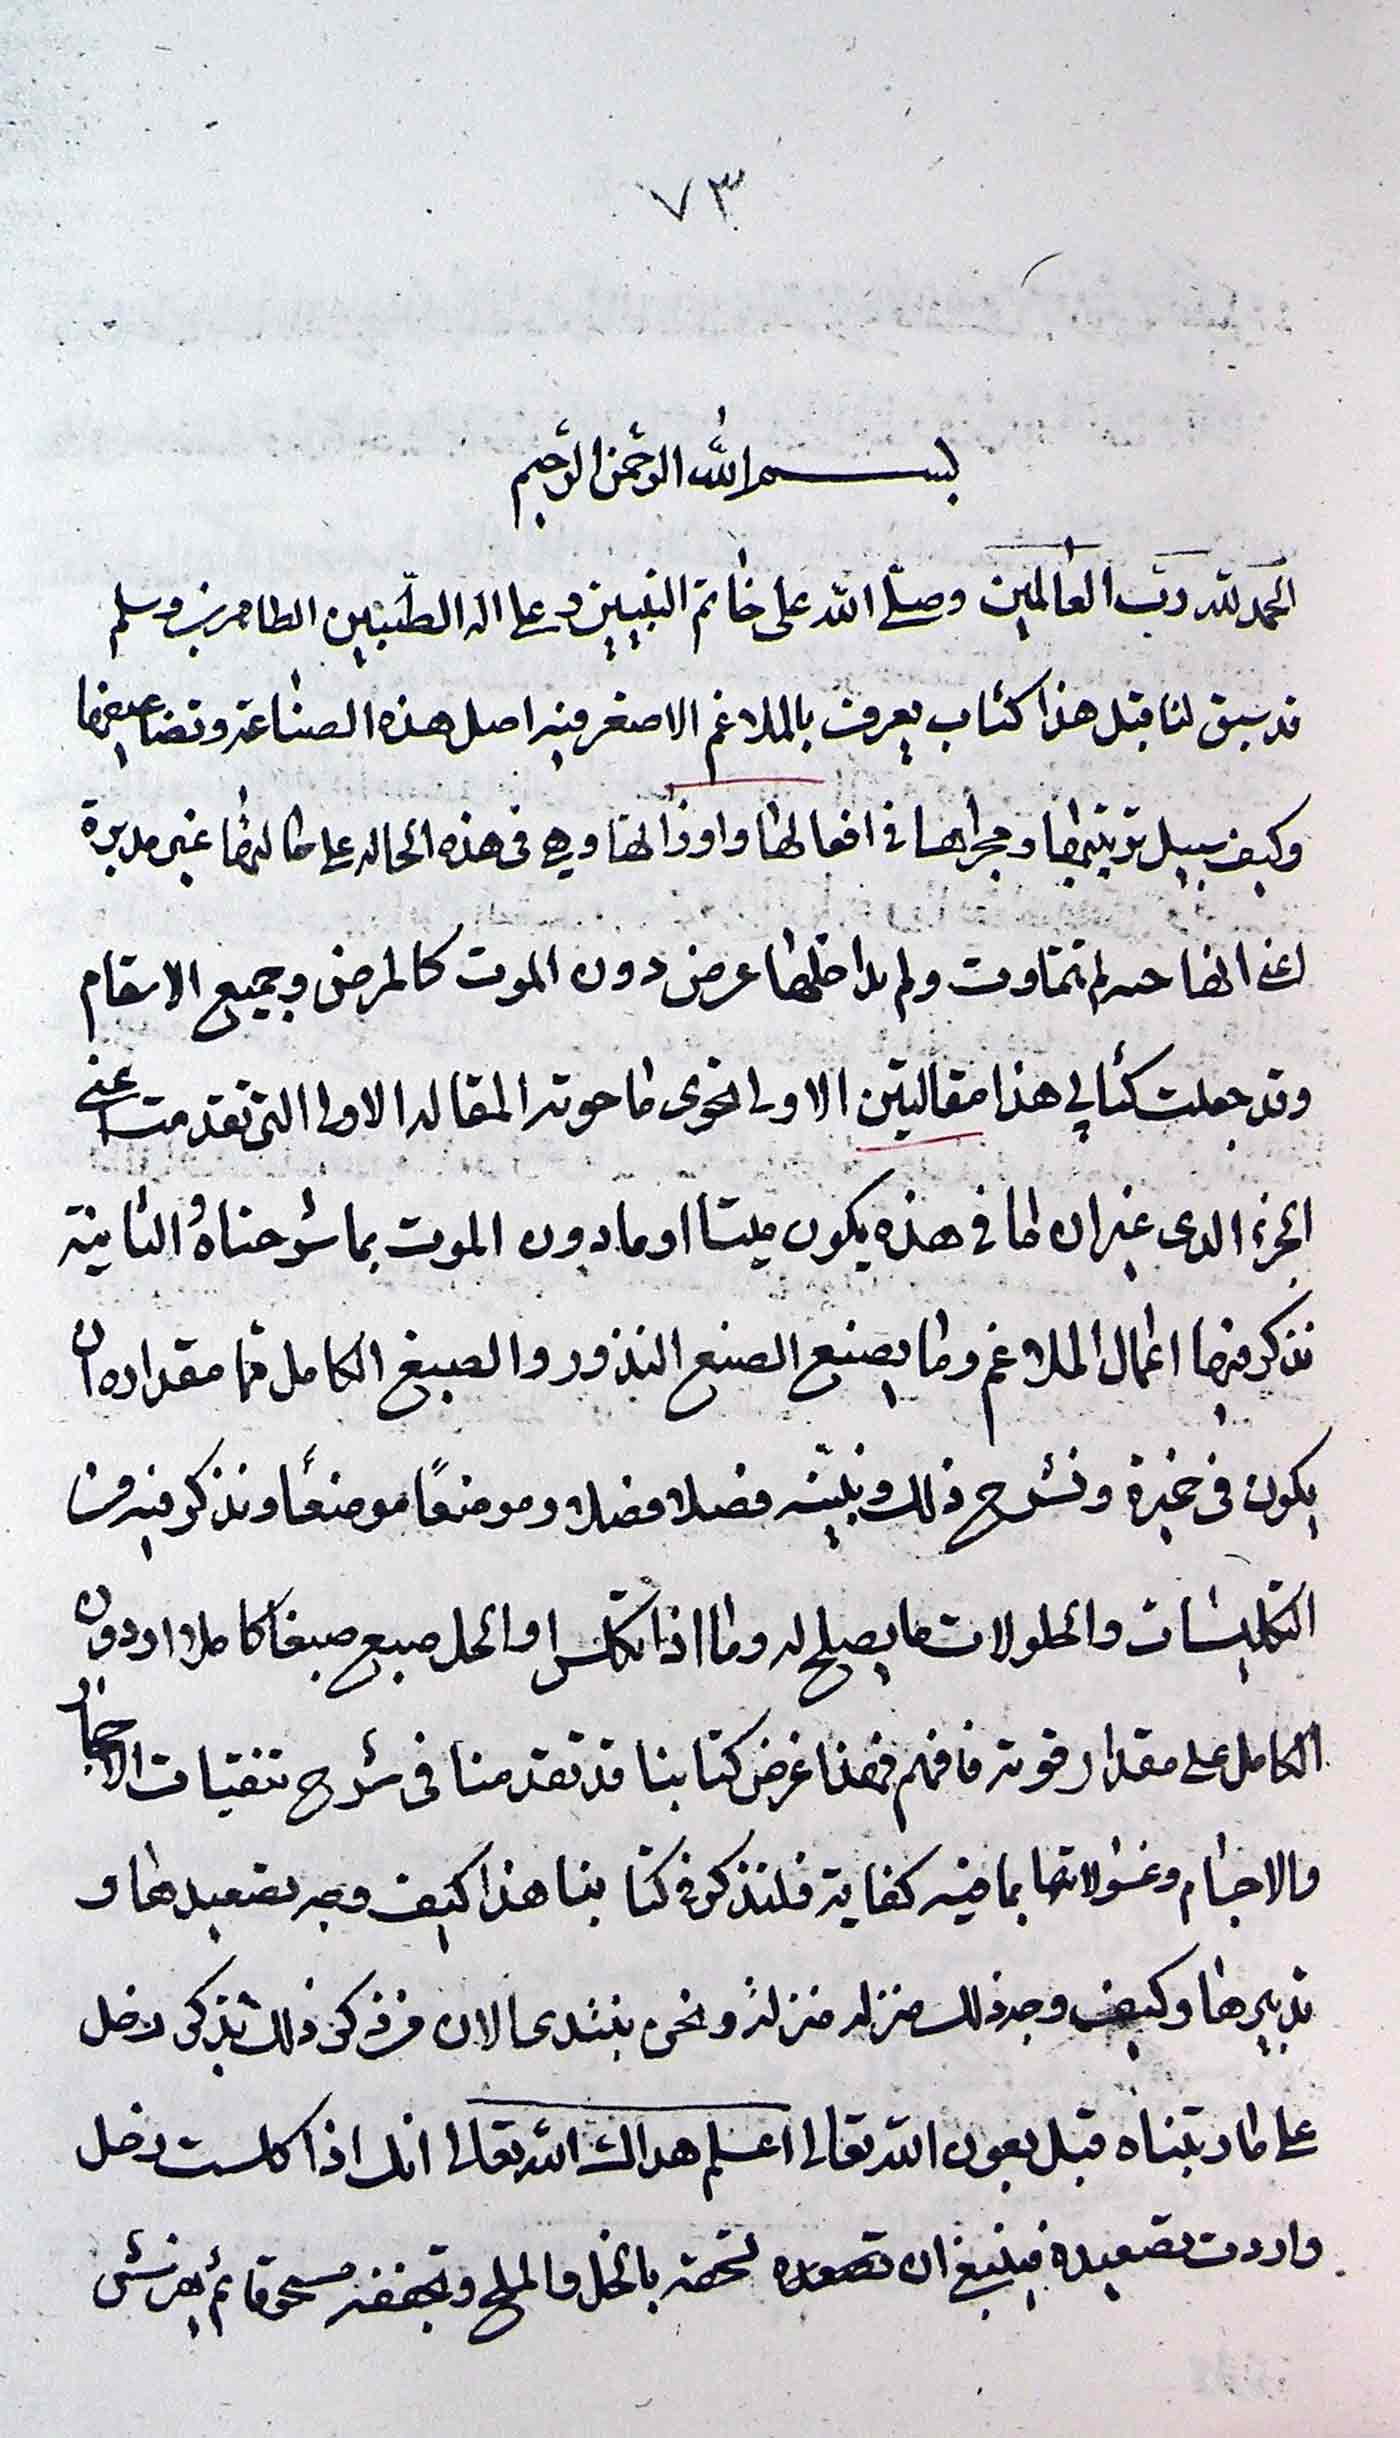 ٧٣
بسم الله الرحمن الرحيم
الحمد لله رب العالمين وصلى الله على خاتم النبيين وعلى اله الطيبين الطاهرين وسلم
قد سبق لنا قبل هذا كتاب يعرف بالملاغم الاصغر فيه اصل هذه الصناعة وتضاعيفها
وكيف سبيل ترتيبها ومجراها في افعالها واوزانها وهي في هذه الحاله على حالتها غير مدبرة
اعني انها لم تتماوت ولم يداخلها عرض دون الموت كالمرض وجميع الاسقام
وقد جعلت كتابي هذا مقالتين الاولى نحوى ما حوته المقاله الاولى التي تقدمت اعني
الجزء الدى غير ان ما في هذه يكون ميتا او ما دون الموت بما شرحناه والثانية
نذكر فيها اعمال الملاغم وما يصنع الصنع النذور والصبغ الكامل فما مقداره ان
يكون في خبرة ونشرح ذلك ونبينه فصلا فصلا وموضعًا موضعًا ونذكر فيه من
التكليسات والحلولات ما يصلح له وما اذا تكلس او انحل صبع صبغا كاملا او دون
الكامل على مقدار قوته فافهم فهذا غرض كتابنا قد تقدمنا في شرح تنقيات الاحجار
والاجسام وغسولاتها بما فيه كفاية فلنذكر في كتابنا هذا كيف وجه تصعيدها و
تدبيرها وكيف وجه ذلك منزله منزلة ونحن نبتدى الان من ذكر ذلك بذكر زحل
على ما رتبناه قبل بعون الله تعالى اعلم هداك الله تعالى انك اذا كلست زحل
واردت تصعيده فينبغي ان تصعده تسحقه بالخل والملح وتجففه